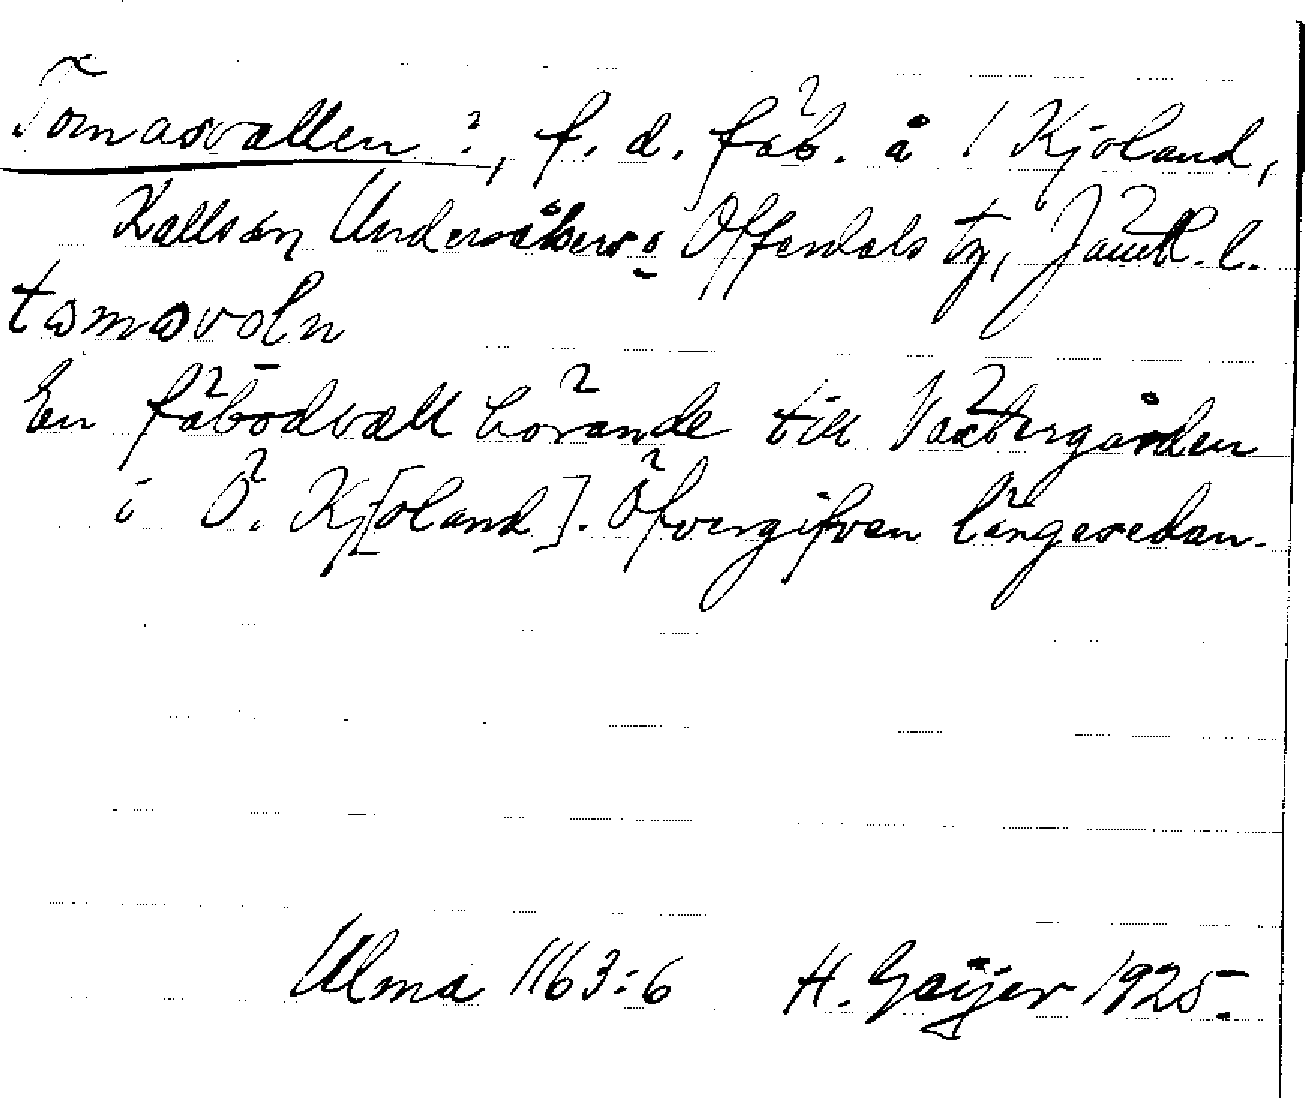 Tomasvallen ?, f. d. fäb. å / Kjoland,
Kallsån, Undersåkers o Offerdals tg, Jämtl. l.
tomasvoln
En fäbodvall hörande till Västergården
i Ö. Kj[oland]. Öfvergifven längesedan.
Ulma 1163:6 H. Geijer 1925.